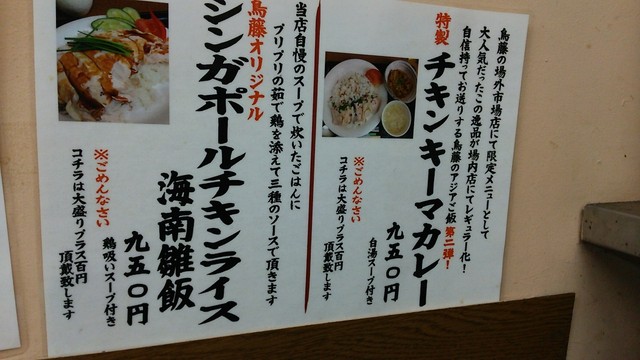 鳥藤の場外市場店にて限定メニューとして
大人気だったこの逸品が場内店にてレギュラー化!
自信持ってお送りする鳥藤のアジアご飯 第二弾!
特製
チキンキーマカレー
九五〇円
白湯スープ付き
※ごめんなさい
コチラは大盛りプラス百円
頂戴致します
当店自慢のスープで炊いたごはんに
プリプリの茹で鶏を添えて三種のソースで頂きます
鳥藤オリジナル
シンガポールチキンライス
海南雞飯
九五〇円
鶏吸いスープ付き
※ごめんなさい
コチラは大盛りプラス百円
頂戴致します